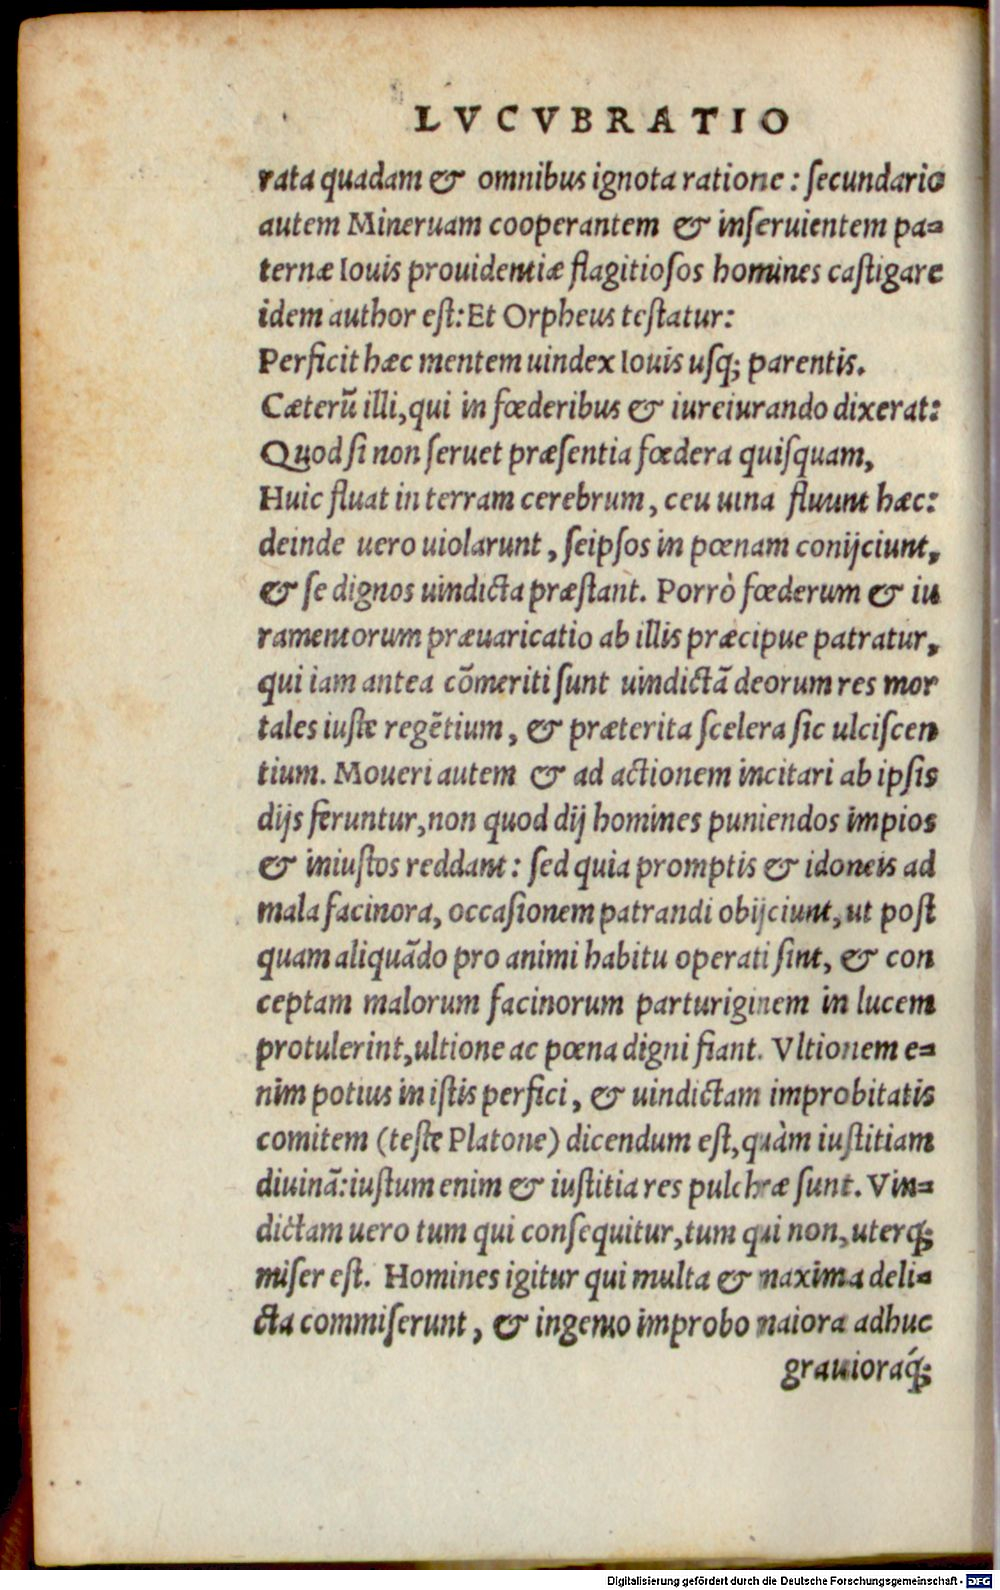 LVCVBRATIO
rata quadam & omnibus ignota ratione: secundario
autem Mineruam cooperantem & inseruientem pa-
ternæ Iouis prouidentiæ flagitiosos homines castigare
idem author est: Et Orpheus testatur:
Perficit hæc mentem uindex Iouis usq; parentis.
Cæterũ illi, qui in fœderibus & iureiurando dixerat:
Quod si non seruet præsentia fœdera quisquam,
Huic fluat in terram cerebrum, ceu uina fluunt hæc:
deinde uero uiolarunt, seipsos in pœnam conijciunt,
& se dignos uindicta præstant. Porrò fœderum & iu
ramentorum præuaricatio ab illis præcipue patratur,
qui iam antea cõmeriti sunt uindictã deorum res mor
tales iuste regẽtium, & præterita scelera sic ulciscen
tium. Moueri autem & ad actionem incitari ab ipsis
dijs feruntur, non quod dij homines puniendos impios
& iniustos reddant: sed quia promptis & idoneis ad
mala facinora, occasionem patrandi obijciunt, ut post
quam aliquãdo pro animi habitu operati sint, & con
ceptam malorum facinorum parturiginem in lucem
protulerint, ultione ac pœna digni fiant. Vltionem e-
nim potius in istis perfici, & uindictam improbitatis
comitem (teste Platone) dicendum est, quàm iustitiam
diuinã: iustum enim & iustitia res pulchræ sunt. Vin-
dictam uero tum qui consequitur, tum qui non, uterq;
miser est. Homines igitur qui multa & maxima deli-
cta commiserunt, & ingenio improbo maiora adhuc
grauioraq́;
Digitalisierung gefördert durch die Deutsche Forschungsgemeinschaft - DFG